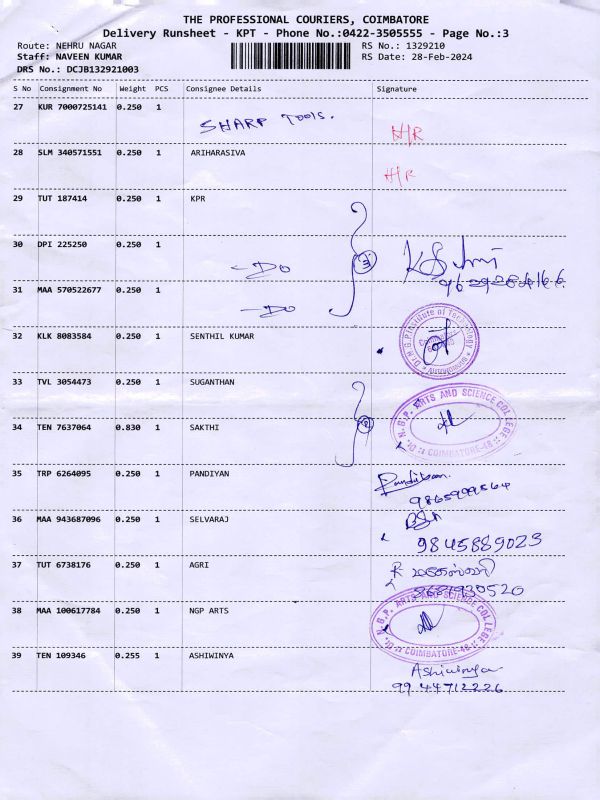 THE PROFESSIONAL COURIERS, COIMBATORE
Delivery Runsheet - KPT - Phone No.:0422-3505555 - Page No.:3
Route: NEHRU NAGAR RS No.: 1329210
Staff: NAVEEN KUMAR RS Date: 28-Feb-2024
DRS No.: DCJB132921003
S No Consignment No Weight PCS Consignee Details Signature
27 KUR 7000725141 0.250 1 SHARP TOOLS. N/R
28 SLM 340571551 0.250 1 ARIHARASIVA N/R
29 TUT 187414 0.250 1 KPR
30 DPI 225250 0.250 1 -DO 3
31 MAA 570522677 0.250 1 -DO
32 KLK 8083584 0.250 1 SENTHIL KUMAR Dr. N.G.P. Institute of Technology
33 TVL 3054473 0.250 1 SUGANTHAN
34 TEN 7637064 0.830 1 SAKTHI 2 Dr. N.G.P. ARTS AND SCIENCE COLLEGE COIMBATORE-48
35 TRP 6264095 0.250 1 PANDIYAN Pandiyan.
36 MAA 943687096 0.250 1 SELVARAJ
9845889023
37 TUT 6738176 0.250 1 AGRI
38 MAA 100617784 0.250 1 NGP ARTS Dr. N.G.P. ARTS AND SCIENCE COLLEGE COIMBATORE-48
39 TEN 109346 0.255 1 ASHIWINYA Ashiwinya
99 44712226